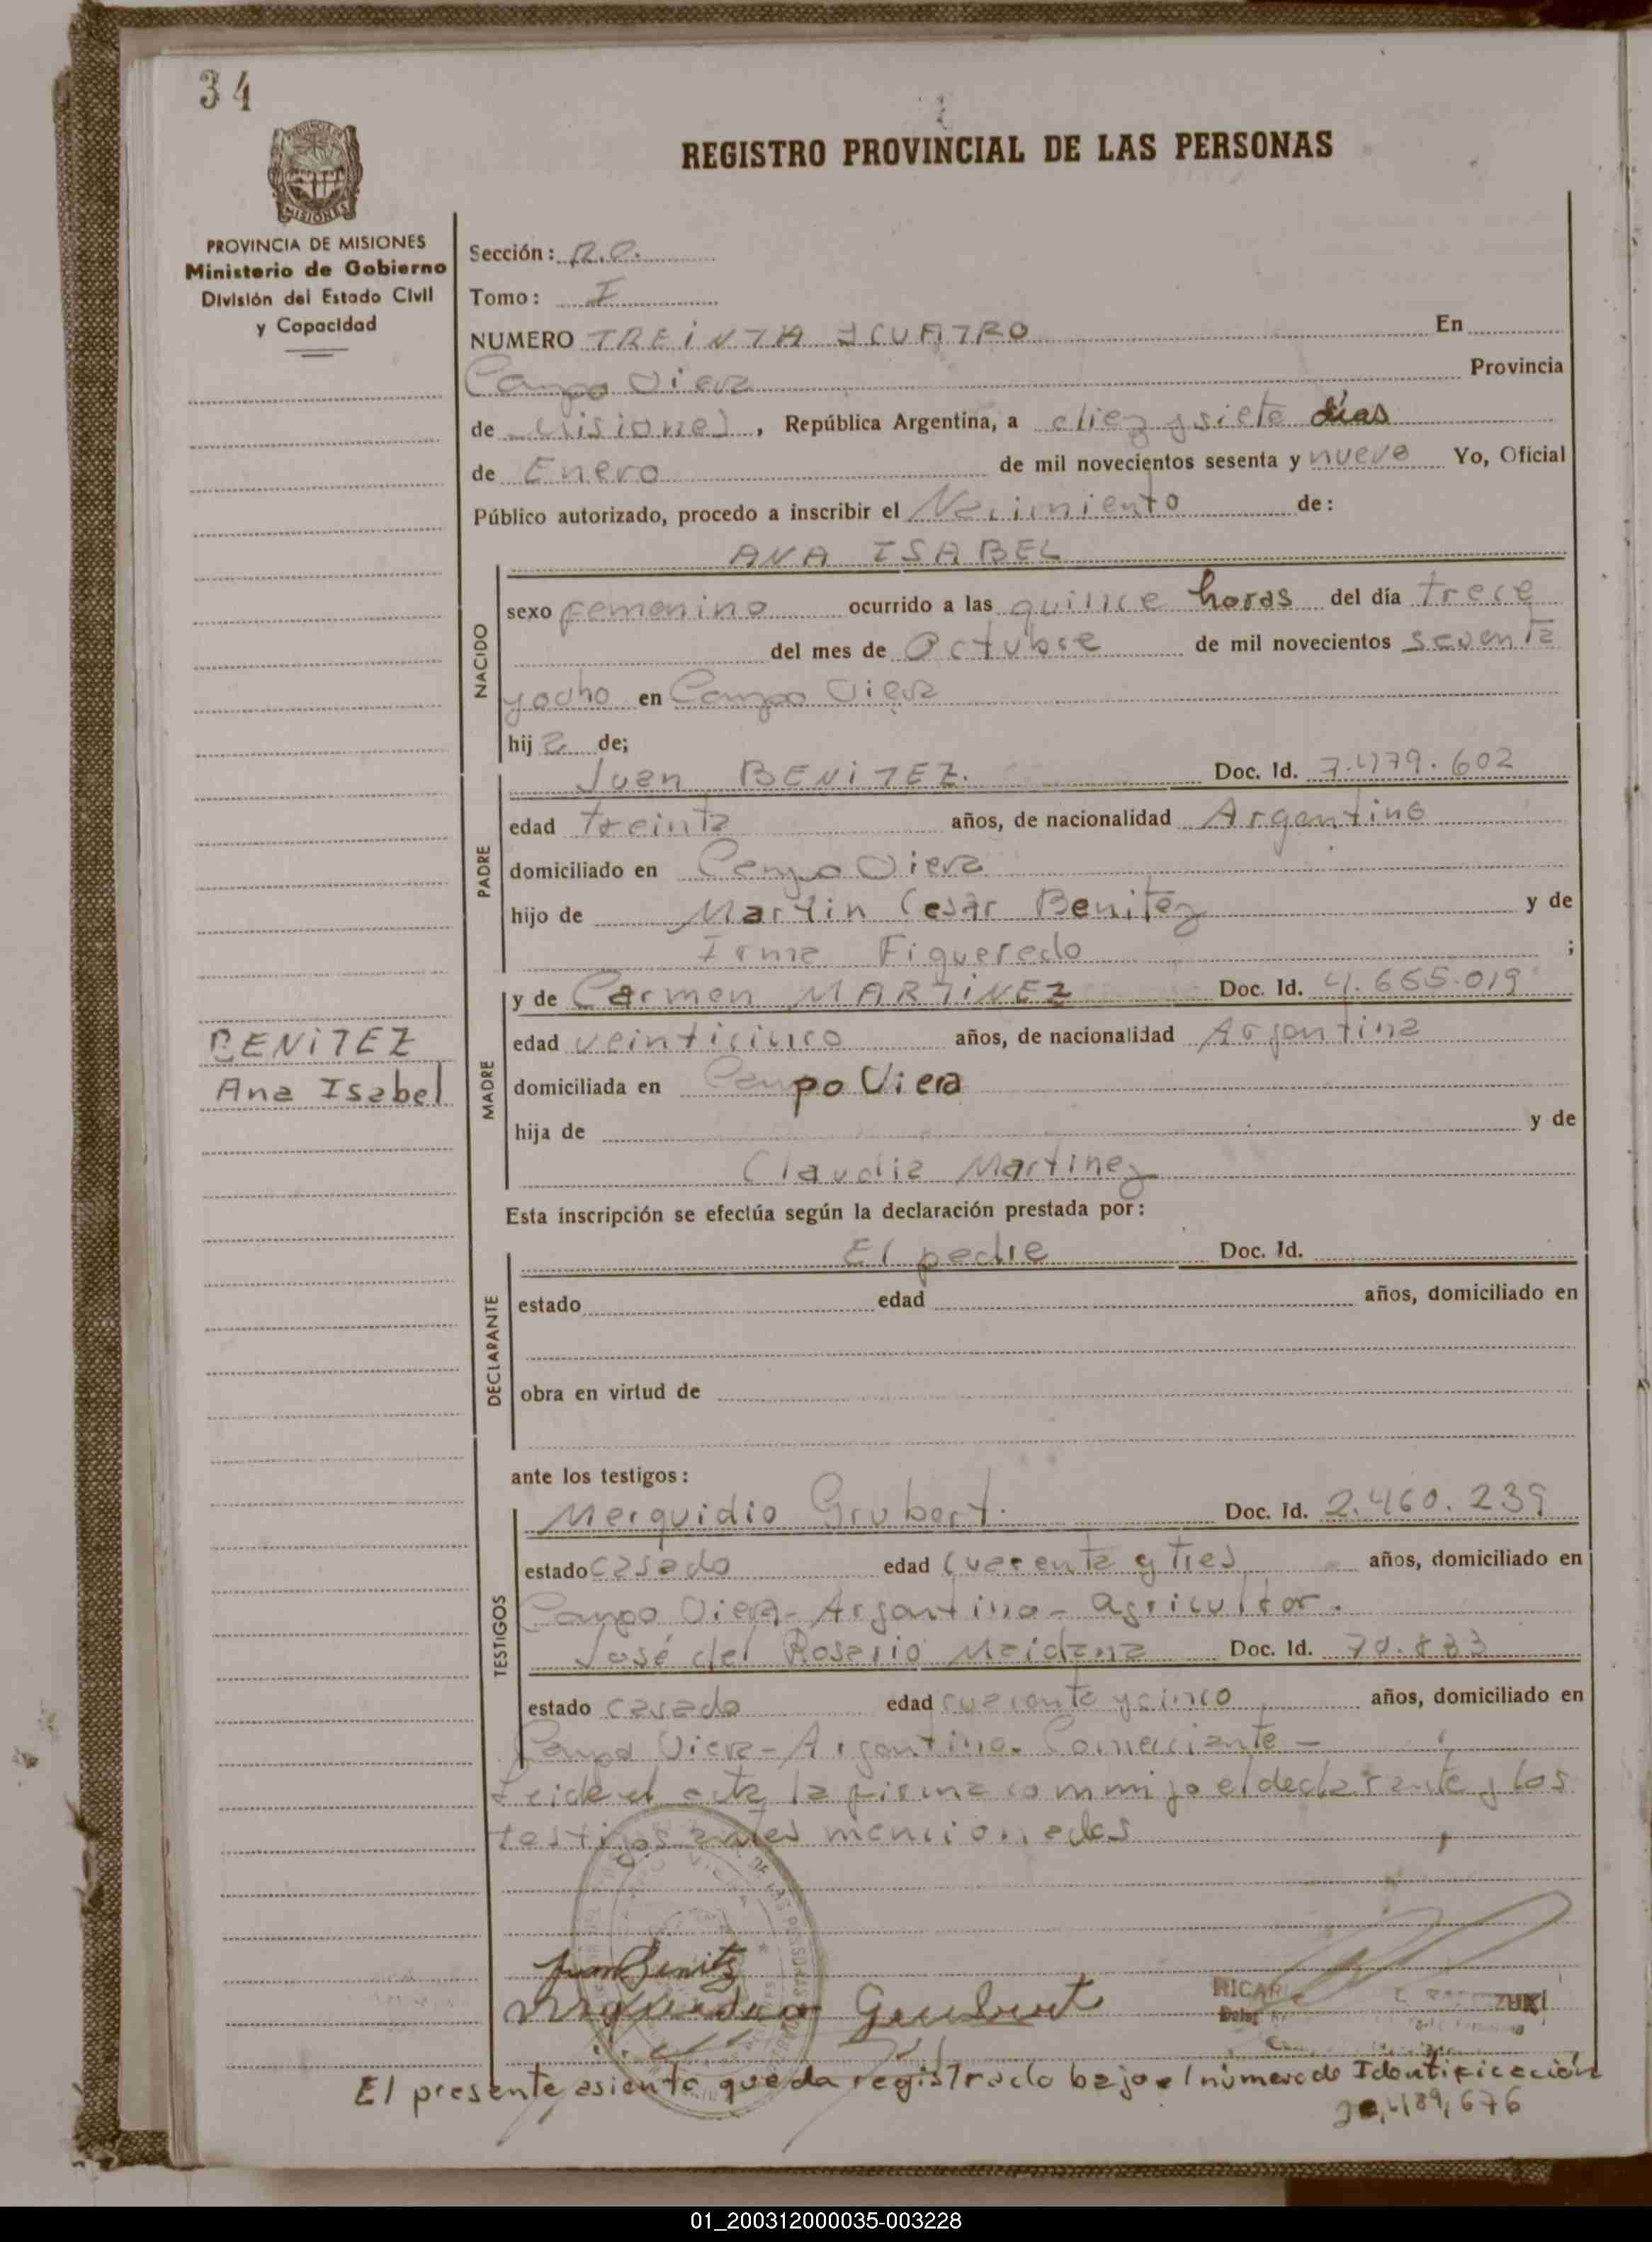 34
REGISTRO PROVINCIAL DE LAS PERSONAS
MISIONES
PROVINCIA DE MISIONES
Ministerio de Gobierno
División del Estado Civil
y Capacidad
Sección: R.O.
Tomo: I
NUMERO TREINTA Y CUATRO En
Campo Viera Provincia
de Misiones, República Argentina, a diez y siete días
de Enero de mil novecientos sesenta y nueve Yo, Oficial
Público autorizado, procedo a inscribir el Nacimiento de:
ANA ISABEL
NACIDO
sexo femenino ocurrido a las quince horas del día trece
del mes de Octubre de mil novecientos sesenta
y ocho en Campo Viera
hij a de;
PADRE
Juan BENITEZ. Doc. Id. 7.479.602
edad treinta años, de nacionalidad Argentino
domiciliado en Campo Viera
hijo de Martin Cesar Benitez y de
Irma Figueredo ;
MADRE
y de Carmen MARTINEZ Doc. Id. 4.655.019
edad veinticinco años, de nacionalidad Argentina
BENITEZ
Ana Isabel
domiciliada en Campo Viera
hija de y de
Claudia Martinez
Esta inscripción se efectúa según la declaración prestada por:
DECLARANTE
El padre Doc. Id.
estado edad años, domiciliado en
obra en virtud de
ante los testigos:
TESTIGOS
Merquidio Grubert. Doc. Id. 2.460.239
estado casado edad cuarenta y tres años, domiciliado en
Campo Viera - Argentino - agricultor.
José del Rosario Maidana Doc. Id. 70.833
estado casado edad cuarenta y cinco años, domiciliado en
Campo Viera - Argentino. Comerciante -
Leida el acta la firma commigo el declarante y los
testigos antes mencionados
Juan Benitez
Grubert
RICAR ZUKI
El presente asiento queda registrado bajo el número de Identificación
20,489,676
01_200312000035-003228